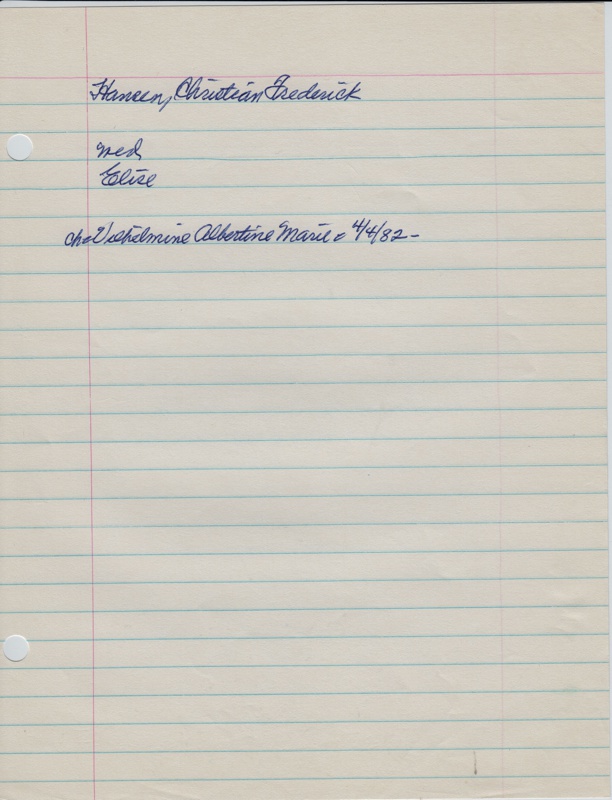 Hansen, Christian Frederick
med
Elise
ch= Vilhelmine Albertine Marie 4/4/82-